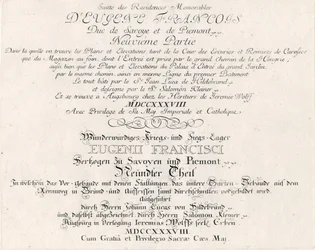 Suite des Residences Memorables
D'EUGENE FRANCOIS
Duc de Savoye et de Piemont
Neuvieme Partie
Dans la quelle on trouve les Plans et Elevations, tant de la Cour des Ecuries et Remises de Carosses
que du Magazin au foin, dont l'Entrée est prise par le grand chemin de la Hongrie
aussi bien que les Plans et Elevations du Palais à l'Entrée du grand Jardin
par le meme chemin, ainsi en meme Ligne du premier Batiment
Le tout bâti par le Sr. Jean Luca de Hildebrand
et designe par le Sr. Salomon Kleiner
Et se trouve a Augsbourg chez les Heritiers de Jeremie Wolff
MDCCXXXVIII
Avec Privilege de Sa Maj. Imperiale et Catholique
Wunderwürdiges Kriegs- und Siegs-Lager
EUGENII FRANCISCI
Hertzogen zu Savoyen und Piemont
Neundter Theil
In welchem das Vor-Gebäude mit denen Stallungen das untere Garten Gebäude auf dem
Rennweg in Grund und Aufrissen samt Durchschnitten vorgebildet wird
Aufgeführt
durch Herrn Johann Lucas von Hildebrand
und daselbst abgezeichnet durch Herrn Salomon Kleiner
Augspurg in Verlegung Jeremias Wolffs seel. Erben
MDCCXXXVIII
Cum Gratia et Privilegio Sacrae Caes. Maj.